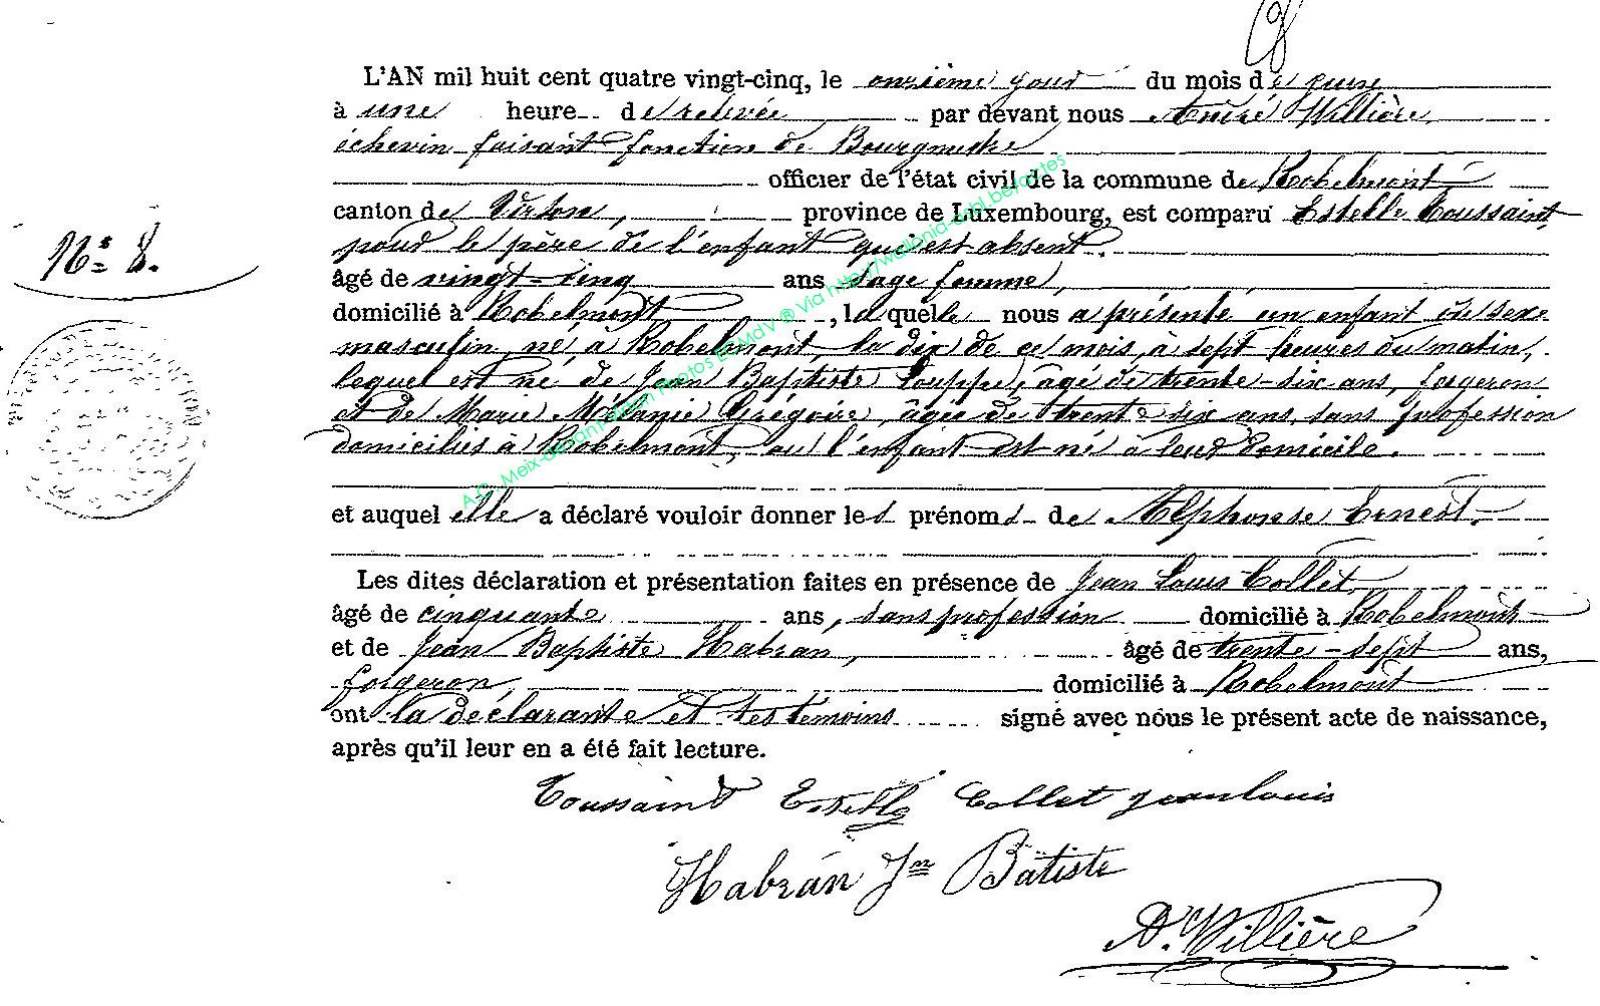 L'AN mil huit cent quatre vingt-cinq, le onzième jour du mois de juin
à une heure de relevée par devant nous André Willière,
échevin faisant fonction de Bourgmestre
officier de l'état civil de la commune de Robelmont,
canton de Virton, province de Luxembourg, est comparu Estelle Toussaint,
pour le père de l'enfant qui est absent.
N° 8.
âgé de vingt-cinq ans sage femme,
domicilié à Robelmont, laquelle nous a présenté un enfant du sexe
masculin, né à Robelmont, le dix de ce mois, à sept heures du matin,
lequel est né de Jean Baptiste Pouppe, âgé de trente-six ans, forgeron
et de Marie Mélanie Grégoire, âgée de trente six ans, sans profession
domiciliés à Robelmont, où l'enfant est né à leur domicile.
et auquel elle a déclaré vouloir donner les prénoms de Alphonse Ernest.
Les dites déclaration et présentation faites en présence de Jean Louis Collet
âgé de cinquante ans, sans profession domicilié à Robelmont
et de Jean Baptiste Habran, âgé de trente-sept ans,
forgeron, domicilié à Robelmont
ont la déclarante et les témoins signé avec nous le présent acte de naissance,
après qu'il leur en a été fait lecture.
Toussaint Estelle Collet jean louis
Habran Jn Batiste
A. Willière